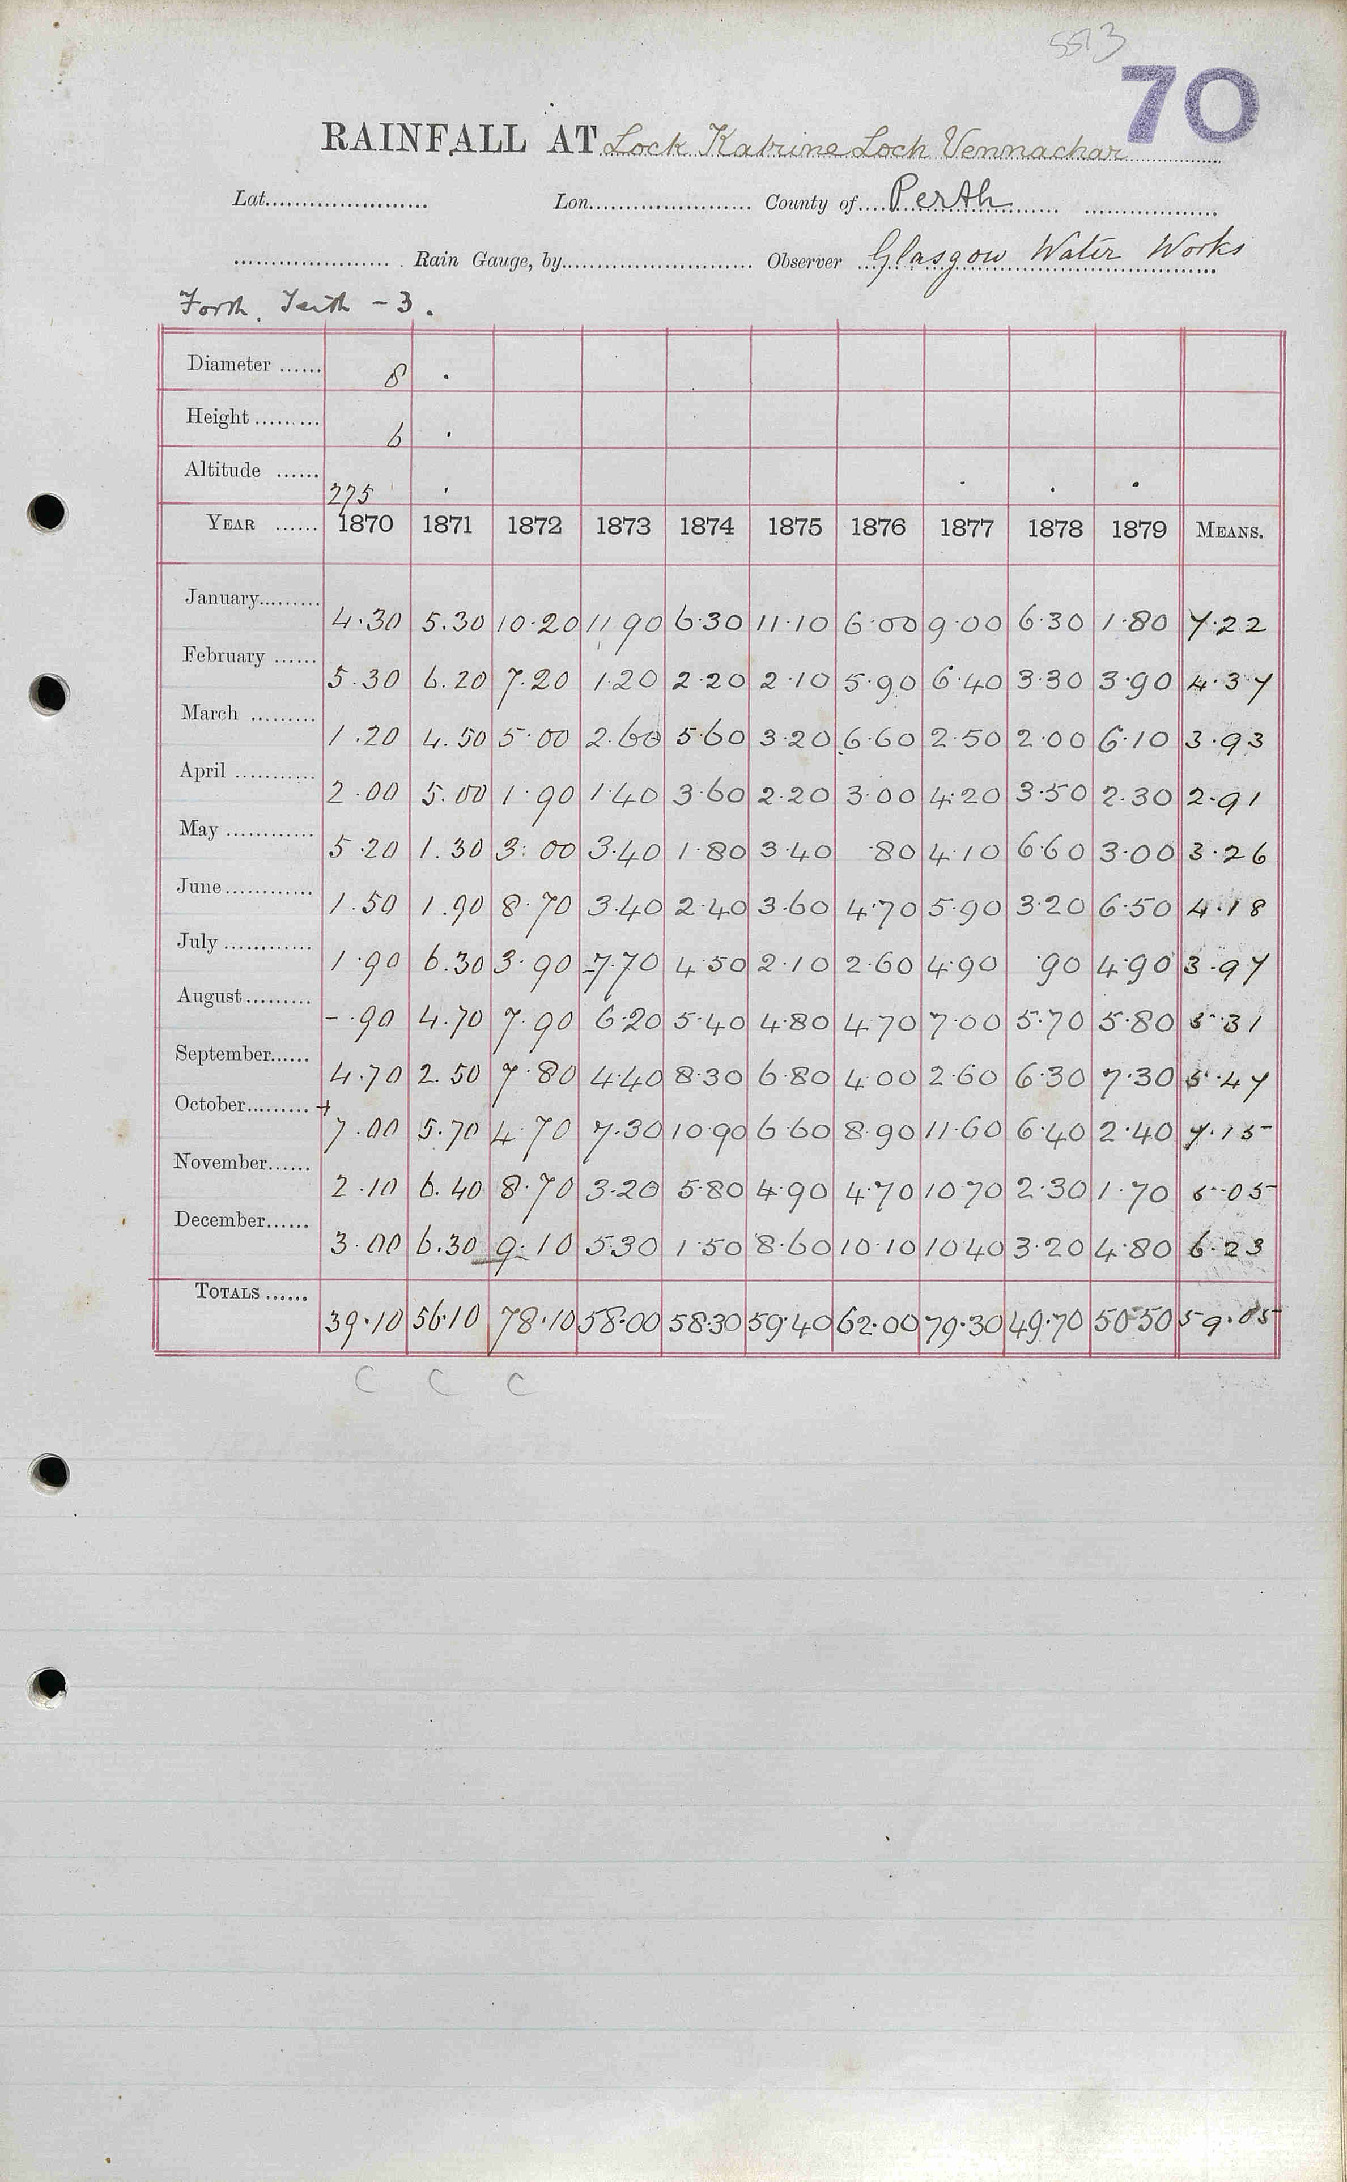 5513
70
RAINFALL AT Lock Katrine Loch Vennachar
Lat. Lon. County of Perth
Rain Gauge, by Observer Glasgow Water Works
Forth. Teith - 3.
Diameter 8 .
Height 6 .
Altitude 275 . . . .
YEAR 1870 1871 1872 1873 1874 1875 1876 1877 1878 1879 MEANS.
January 4.30 5.30 10.20 11.90 6.30 11.10 6.00 9.00 6.30 1.80 7.22
February 5.30 6.20 7.20 1.20 2.20 2.10 5.90 6.40 3.30 3.90 4.37
March 1.20 4.50 5.00 2.60 5.60 3.20 6.60 2.50 2.00 6.10 3.93
April 2.00 5.00 1.90 1.40 3.60 2.20 3.00 4.20 3.50 2.30 2.91
May 5.20 1.30 3.00 3.40 1.80 3.40 .80 4.10 6.60 3.00 3.26
June 1.50 1.90 8.70 3.40 2.40 3.60 4.70 5.90 3.20 6.50 4.18
July 1.90 6.30 3.90 7.70 4.50 2.10 2.60 4.90 .90 4.90 3.97
August - .90 4.70 7.90 6.20 5.40 4.80 4.70 7.00 5.70 5.80 5.31
September 4.70 2.50 7.80 4.40 8.30 6.80 4.00 2.60 6.30 7.30 5.47
October + 7.00 5.70 4.70 7.30 10.90 6.60 8.90 11.60 6.40 2.40 7.15
November 2.10 6.40 8.70 3.20 5.80 4.90 4.70 10.70 2.30 1.70 5.05
December 3.00 6.30 9.10 5.30 1.50 8.60 10.10 10.40 3.20 4.80 6.23
TOTALS 39.10 56.10 78.10 58.00 58.30 59.40 62.00 79.30 49.70 50.50 59.05
C C C